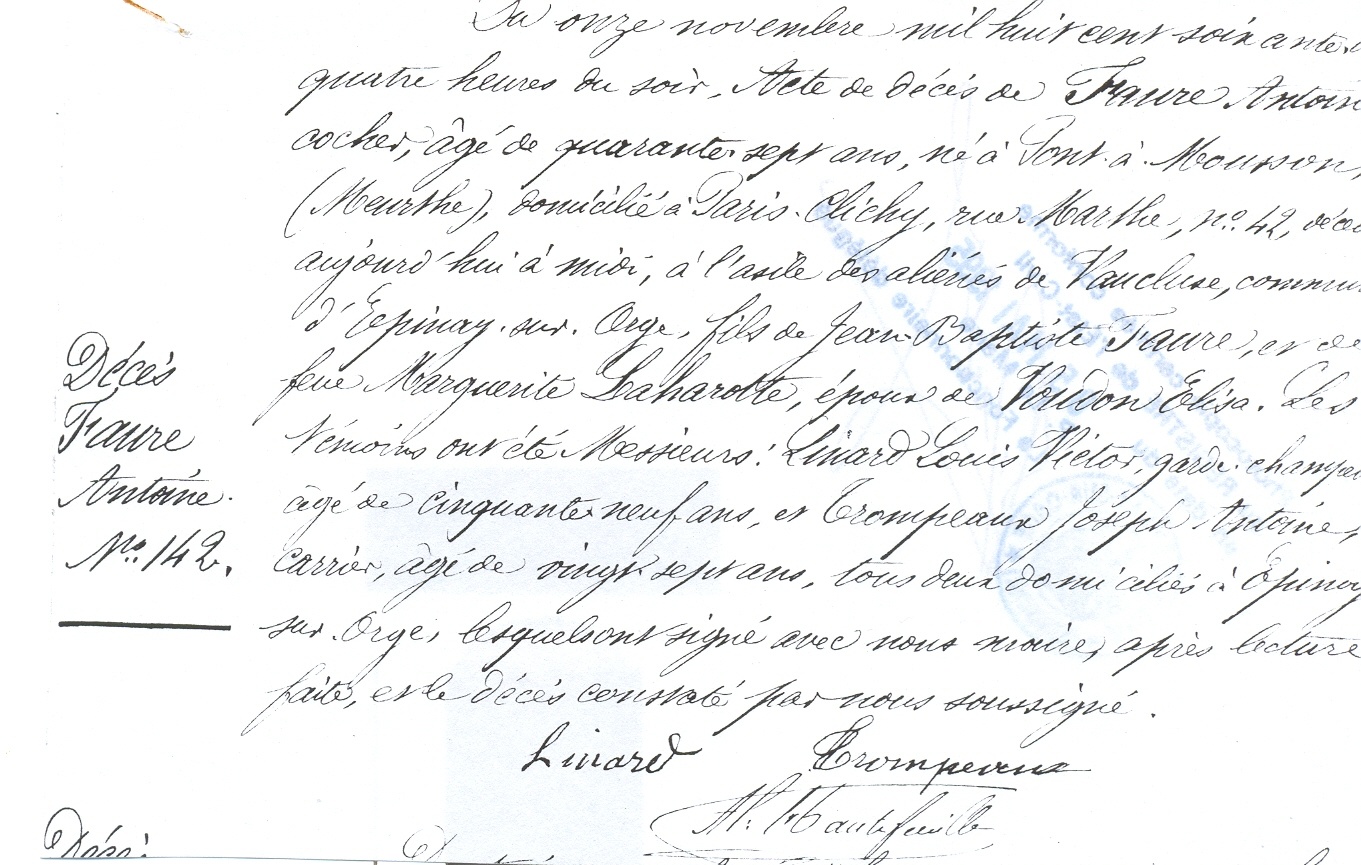 Du onze novembre mil huit cent soixante
quatre heures du soir, Acte de décès de Faure Antoin
cocher, âgé de quarante-sept ans, né à Pont à Mousson,
(Meurthe), domicilié à Paris-Clichy, rue Marthe, no. 42, décé
aujourd'hui à midi, à l'asile des aliénés de Vaucluse, commun
d'Epinay-sur-Orge, fils de Jean-Baptiste Faure, et de
feue Marguerite Laharotte, époux de Voudon Elisa. Les
témoins ont été Messieurs: Linard Louis Victor, garde-champê
âgé de cinquante-neuf ans, et Trompeaux Joseph Antoine,
carrier, âgé de vingt-sept ans, tous deux domiciliés à Epinay
sur-Orge, lesquels ont signé avec nous maire, après lecture
faite, et le décès constaté par nous soussigné.
Décès
Faure
Antoine.
No. 142.
Linard Trompeaux
Décès